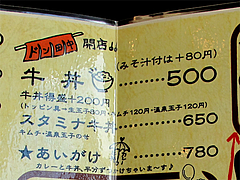 ドン田や 開店
(みそ汁付は+80円)
牛丼 500
牛丼得盛+200円
キムチ120円・温泉玉子120円
スタミナ牛丼 650
キムチ・温泉玉子のせ
★あいがけ 780
カレーと牛丼、半分ずつかけちゃいま～す♪